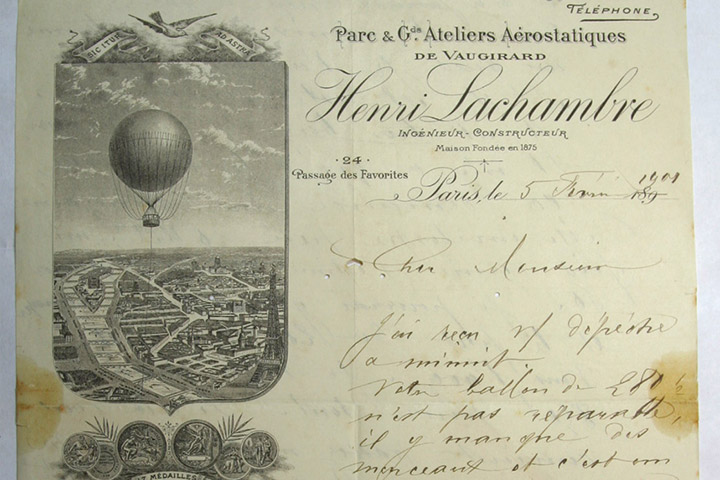 TÉLÉPHONE
SIC ITUR AD ASTRA
Parc & Gds Ateliers Aérostatiques
DE VAUGIRARD
Henri Lachambre
INGÉNIEUR-CONSTRUCTEUR
Maison Fondée en 1875
24
Passage des Favorites
Paris, le 5 1901
189
Cher Monsieur
J'ai reçu v/ dépêche
a minuit
Votre ballon de 280
n'est pas reparable,
il y manque des
morceaux et c'est un
MEDAILLES